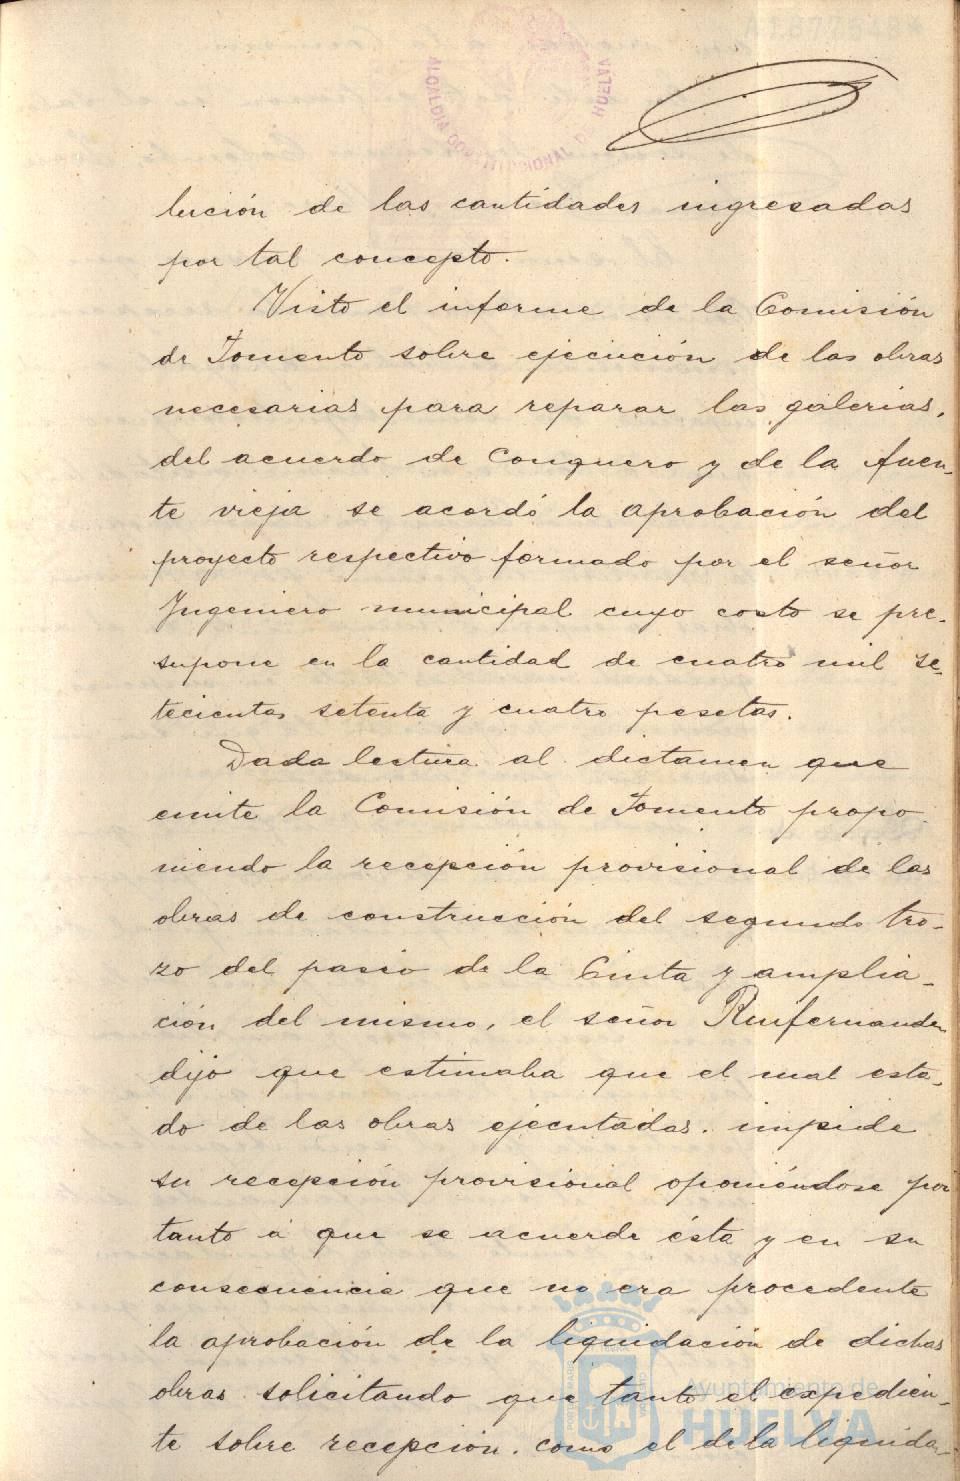 ALCALDIA CONSTITUCIONAL DE HUELVA
lución de las cantidades ingresadas
por tal concepto.
Visto el informe de la Comisión
de Fomento sobre ejecución de las obras
necesarias para reparar las galerias,
del acuerdo de Conquero y de la fuen-
te vieja se acordó la aprobación del
proyecto respectivo formado por el señor
Ingeniero municipal cuyo costo se pre-
supone en la cantidad de cuatro mil se-
tecientas setenta y cuatro pesetas.
Dada lectura al dictamen que
emite la Comisión de Fomento propo
niendo la recepción provisional de las
obras de construcción del segundo tro-
zo del paseo de la Cinta y amplia-
ción del mismo, el señor Ruifernandez
dijo que estimaba que el mal esta-
do de las obras ejecutadas. impide
su recepción provisional oponiéndose por
tanto á que se acuerde ésta y en su
consecuencia que no era procedente
la aprobación de la liquidación de dichas
obras solicitando que tanto el expedien-
te sobre recepción. como el de la liquida-
Ayuntamiento de
HUELVA